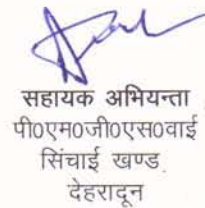 सहायक अभियन्ता
पी0एम0जी0एस0वाई
सिंचाई खण्ड
देहरादून